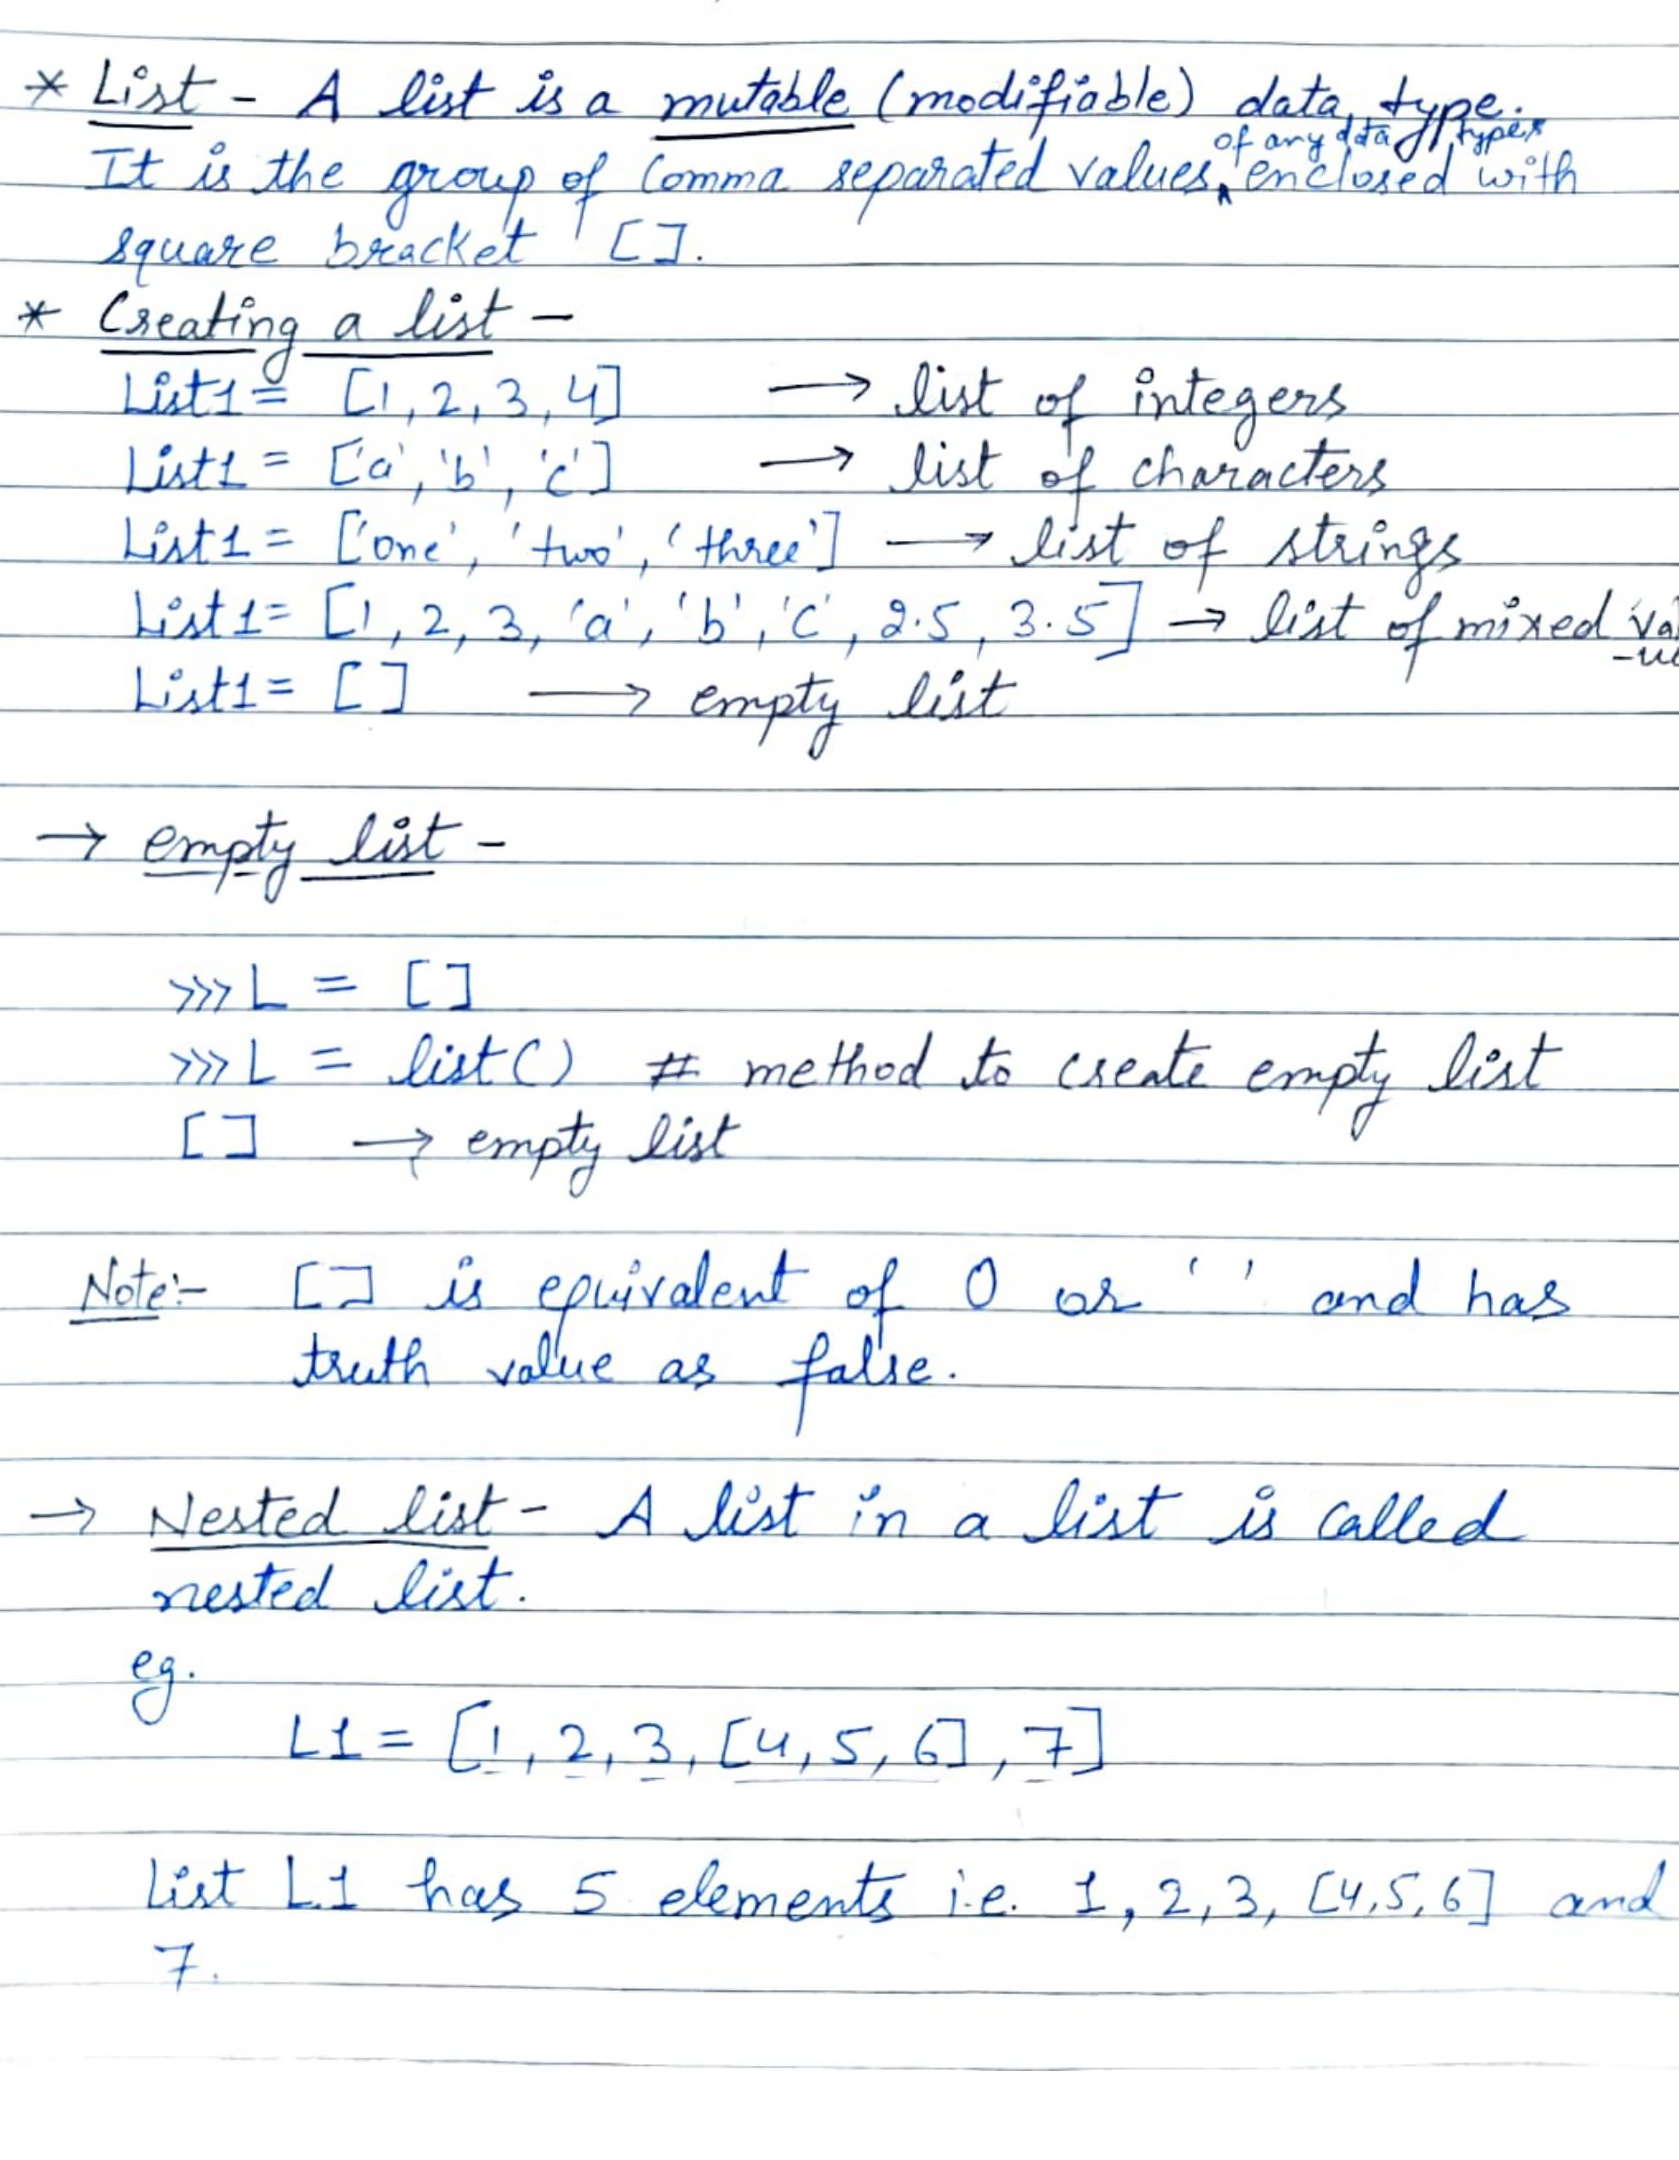 * List - A list is a mutable (modifiable) data type.
of any data types
It is the group of Comma separated values, enclosed with
square bracket [].
* Creating a list -
List1 = [1, 2, 3, 4] → list of integers
List1 = ['a', 'b', 'c'] → list of characters
List1 = ['one', 'two', 'three'] → list of strings
List1 = [1, 2, 3, 'a', 'b', 'c', 2.5, 3.5] → list of mixed va
-ue
List1 = [] → empty list
→ empty list -
>>> L = []
>>> L = list() # method to create empty list
[] → empty list
Note:- [] is equivalent of 0 or ' ' and has
truth value as false.
→ Nested list - A list in a list is called
nested list.
eg.
L1 = [1, 2, 3, [4, 5, 6], 7]
List L1 has 5 elements i.e. 1, 2, 3, [4, 5, 6] and
7.